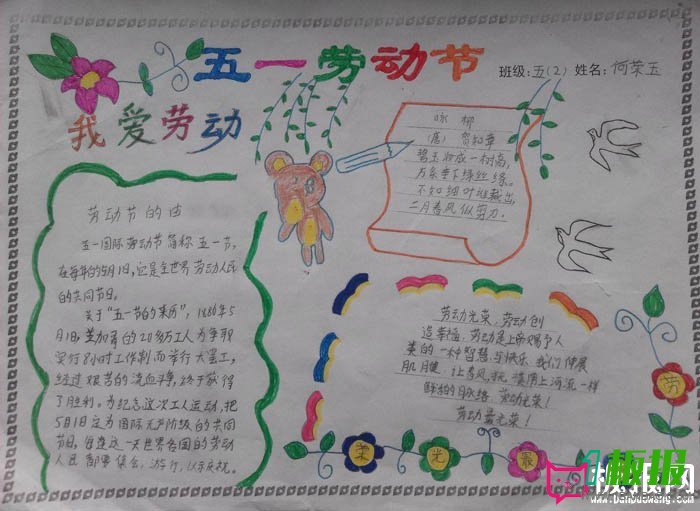 五一劳动节
班级:五(2) 姓名:何荣玉
我爱劳动
咏柳
(唐) 贺知章
碧玉妆成一树高,
万条垂下绿丝绦。
不知细叶谁裁出,
二月春风似剪刀。
劳动节的由
五一国际劳动节简称五一节,
在每年的5月1日,它是全世界劳动人民
的共同节日。
关于“五一节的来历”,1886年5
月1日,芝加哥的20多万工人为争取
实行8小时工作制而举行大罢工,
经过艰苦的流血斗争,终于获得
了胜利。为纪念这次工人运动,把
5月1日定为国际无产阶级的共同
节日,每逢这一天世界各国的劳动
人民都要集会,游行,以示庆祝。
劳动光荣,劳动创
造幸福,劳动是上帝赐予人
类的一种智慧与快乐,我们伸展
肌腱,让春风抚摸肩上河流一样
的脉络,劳动光荣!
劳动最光荣!
劳
荣 光 最
板报网
www.banbaowang.com